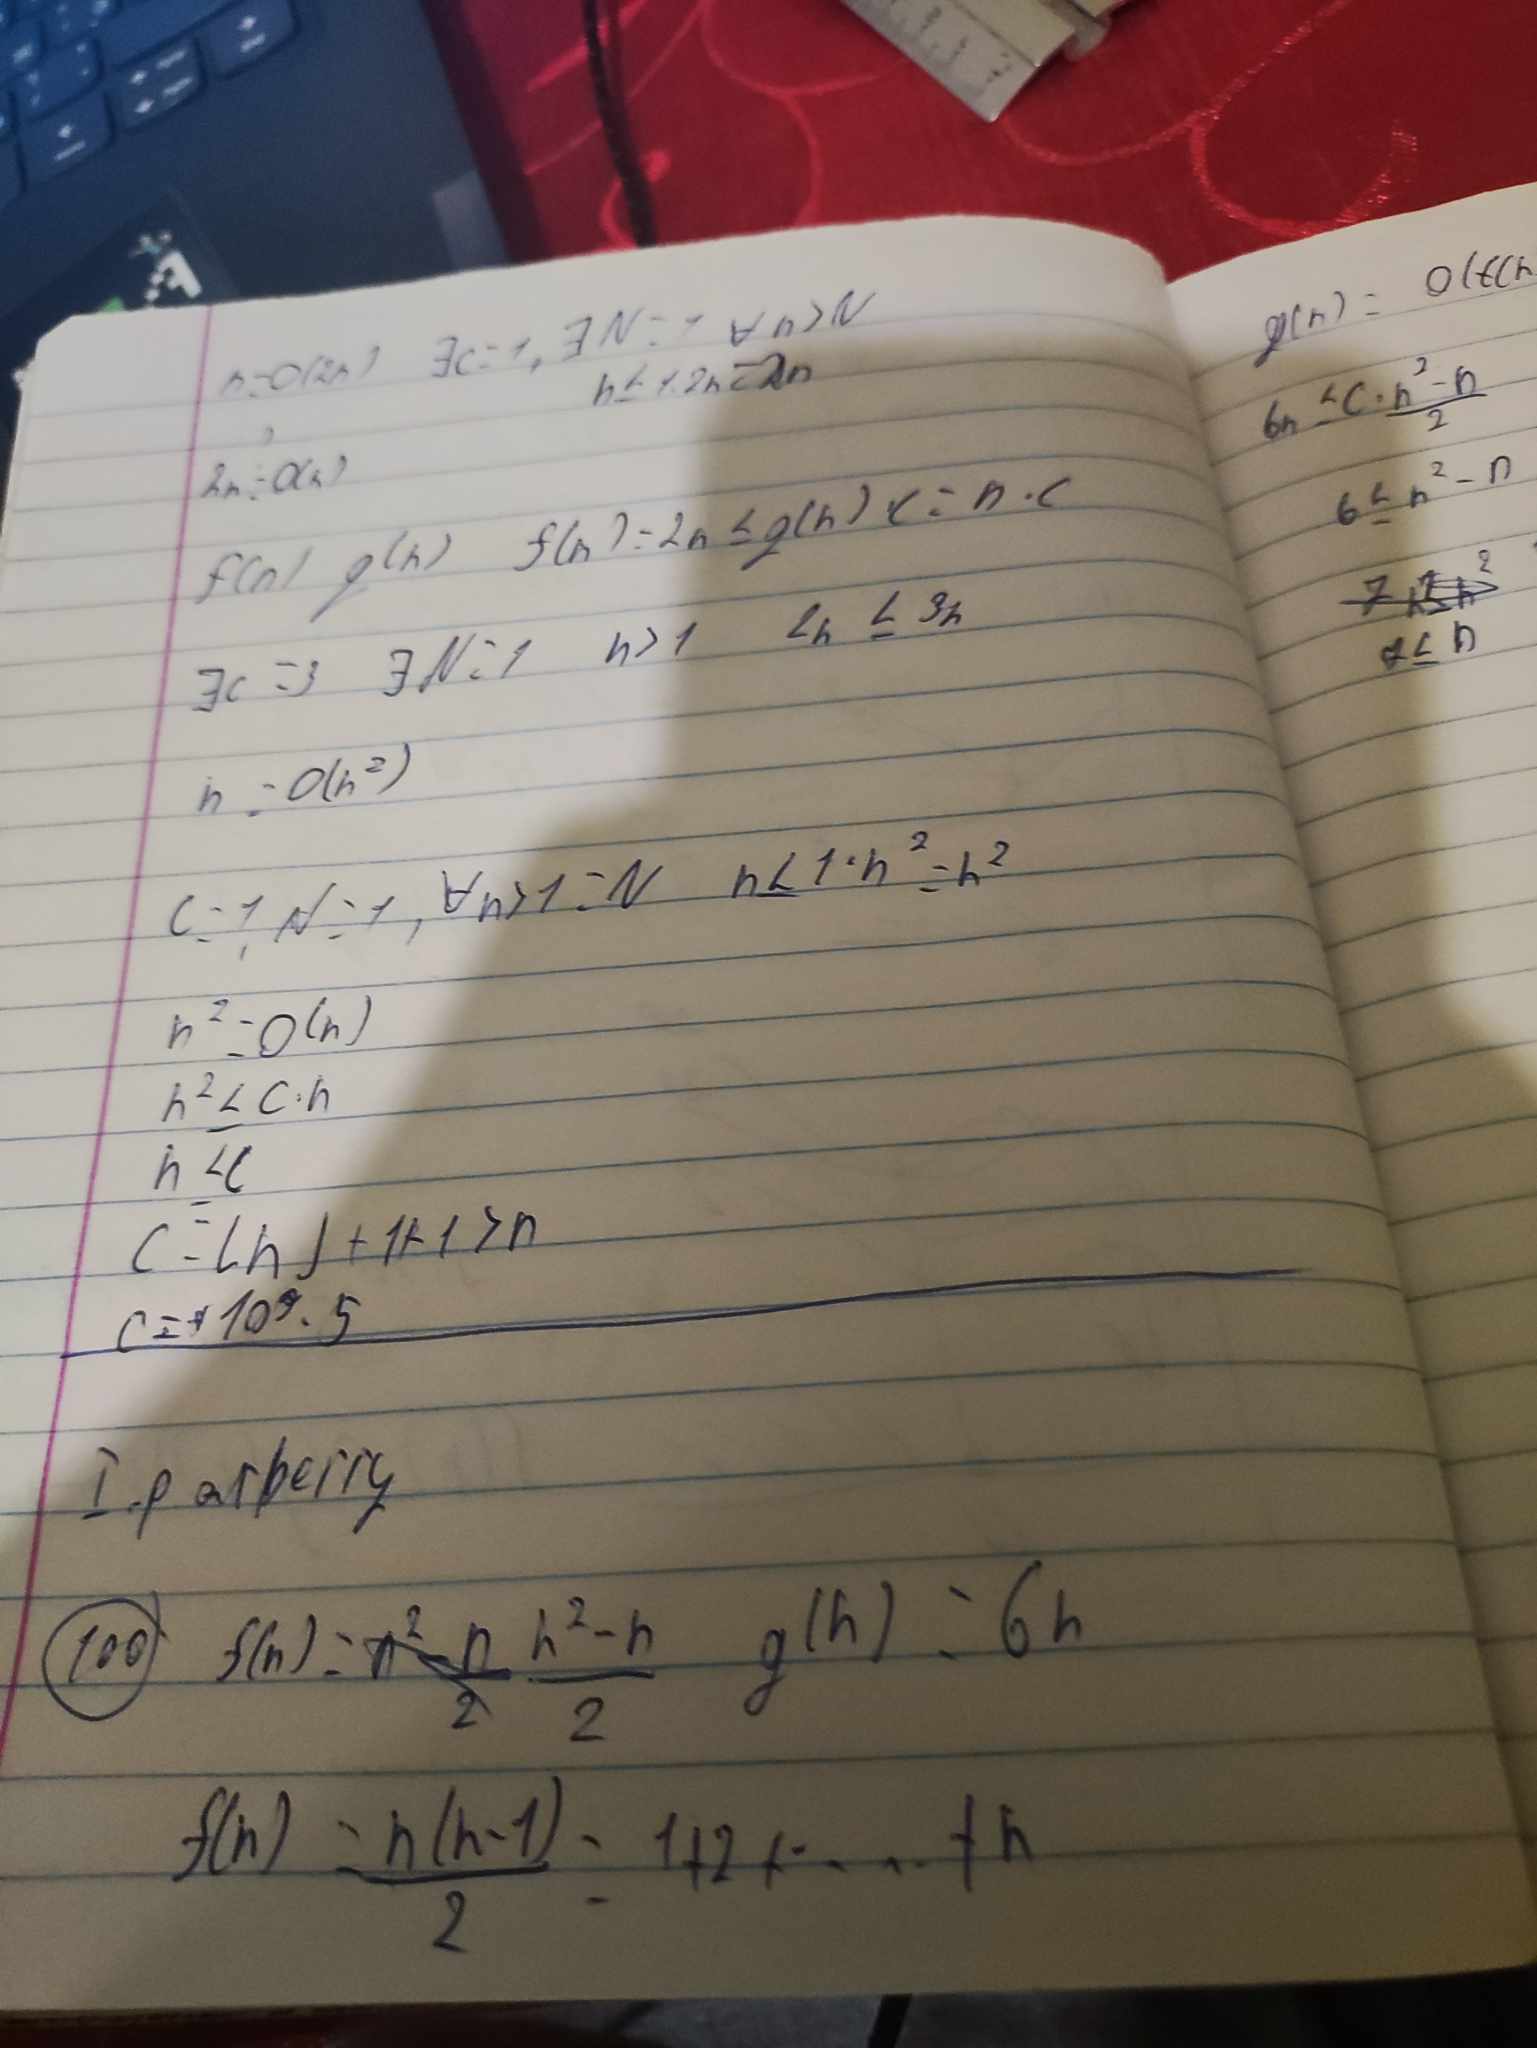 n=O(2n) ∃c=1, ∃N=1 ∀n>N
n≤1·2n=2n
2n=O(n)
f(n) g(n) f(n)=2n≤g(n)c=n·c
∃c=3 ∃N=1 n>1 2n≤3n
n=O(n²)
C=1, N=1, ∀n>1=N n≤1·n²=n²
n²=O(n)
n²≤C·n
n≤C
C=⌊n⌋+1+1>n
I. parberry
100 f(n)=n²-n/2 (n²-n)/2 g(n)=6n
f(n)=n(n-1)/2=1+2+.....+n
g(n)=O(f(n
6n≤C·(n²-n)/2
6≤n²-n
7≤n